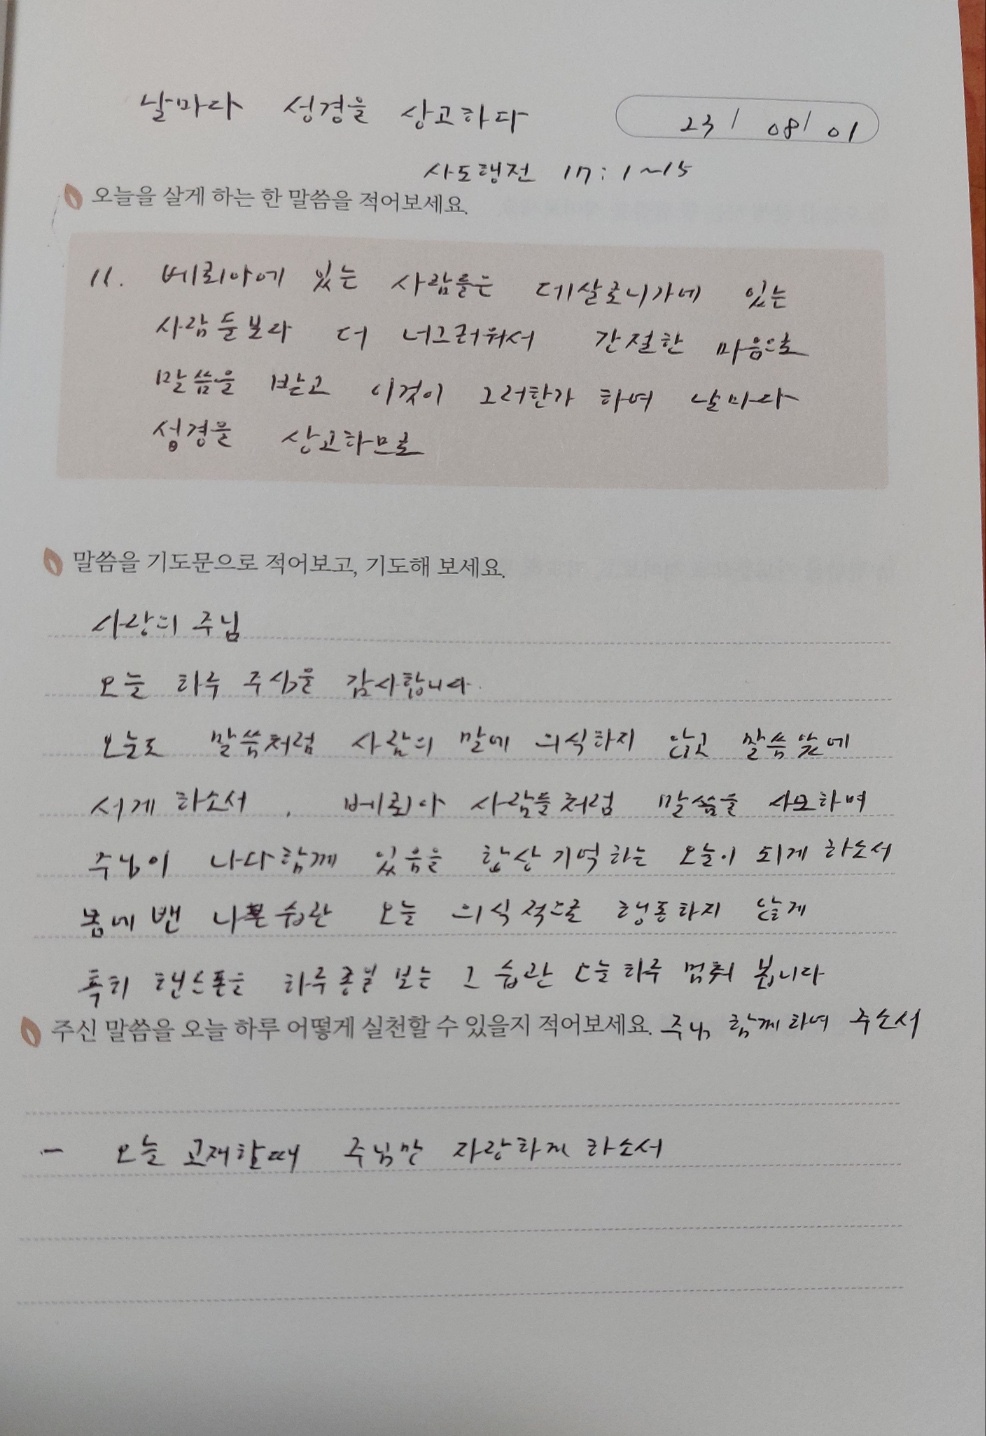 날마다 성경을 상고하다
23/ 08/ 01
사도행전 17:1~15
오늘을 살게 하는 한 말씀을 적어보세요.
11. 베뢰아에 있는 사람들은 데살로니가에 있는
사람들보다 더 너그러워서 간절한 마음으로
말씀을 받고 이것이 그러한가 하여 날마다
성경을 상고하므로
말씀을 기도문으로 적어보고, 기도해 보세요.
사랑의 주님
오늘 하루 주심을 감사합니다.
오늘도 말씀처럼 사람의 말에 의식하지 않고 말씀앞에
서게 하소서. 베뢰아 사람들처럼 말씀을 사모하며
주님이 나와함께 있음을 항상 기억하는 오늘이 되게 하소서
몸에 밴 나쁜 습관 오늘 의식적으로 행동하지 않게
특히 핸드폰을 하루종일 보는 그 습관 오늘하루 멈춰 봅니다
주신 말씀을 오늘 하루 어떻게 실천할 수 있을지 적어보세요. 주님 함께하여 주소서
- 오늘 교제할때 주님만 자랑하게 하소서